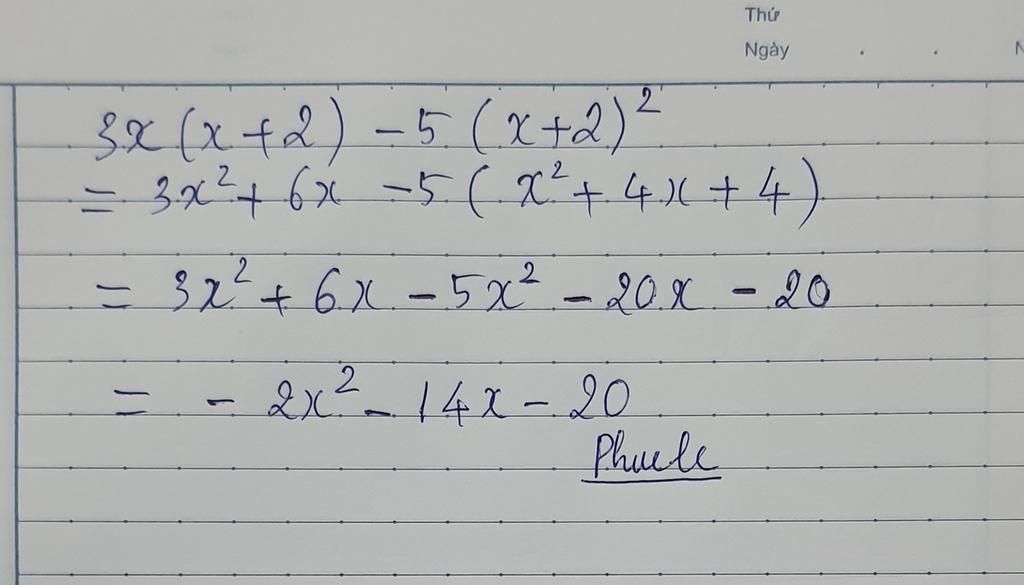 Thứ
Ngày . .
3x(x+2) - 5(x+2)²
= 3x² + 6x - 5(x² + 4x + 4)
= 3x² + 6x - 5x² - 20x - 20
= - 2x² - 14x - 20